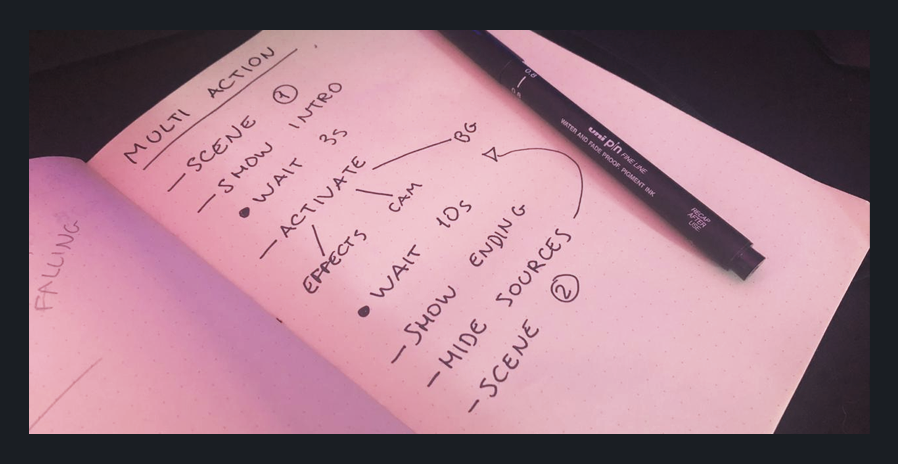 MULTI ACTION
- SCENE ①
- SHOW INTRO
• WAIT 3s
- ACTIVATE
BG
CAM
EFFECTS
• WAIT 10s
- SHOW ENDING
- HIDE SOURCES
- SCENE ②
FALLING
0.8
uni pin FINE LINE
WATER AND FADE PROOF, PIGMENT INK
RECAP
AFTER
USE